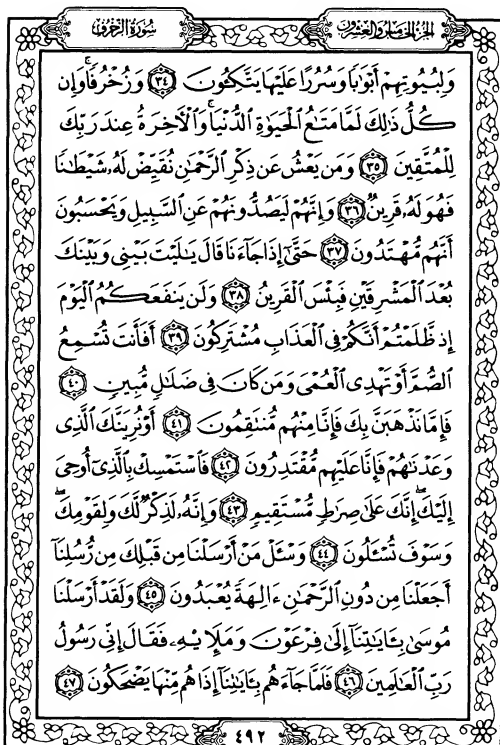 سُورَةُ الزُّخْرُفِ
الجُزءُ الخَامِسُ وَالعِشْرُونَ
وَلِبُيُوتِهِمْ أَبْوَٰبًا وَسُرُرًا عَلَيْهَا يَتَّكِـُٔونَ ٣٤ وَزُخْرُفًا ۚ وَإِن
كُلُّ ذَٰلِكَ لَمَّا مَتَٰعُ الْحَيَوٰةِ الدُّنْيَا ۚ وَالْآخِرَةُ عِندَ رَبِّكَ
لِلْمُتَّقِينَ ٣٥ وَمَن يَعْشُ عَن ذِكْرِ الرَّحْمَٰنِ نُقَيِّضْ لَهُۥ شَيْطَٰنًا
فَهُوَ لَهُۥ قَرِينٌ ٣٦ وَإِنَّهُمْ لَيَصُدُّونَهُمْ عَنِ السَّبِيلِ وَيَحْسَبُونَ
أَنَّهُم مُّهْتَدُونَ ٣٧ حَتَّىٰٓ إِذَا جَآءَنَا قَالَ يَٰلَيْتَ بَيْنِى وَبَيْنَكَ
بُعْدَ الْمَشْرِقَيْنِ فَبِئْسَ الْقَرِينُ ٣٨ وَلَن يَنفَعَكُمُ الْيَوْمَ
إِذ ظَّلَمْتُمْ أَنَّكُمْ فِى الْعَذَابِ مُشْتَرِكُونَ ٣٩ أَفَأَنتَ تُسْمِعُ
الصُّمَّ أَوْ تَهْدِى الْعُمْىَ وَمَن كَانَ فِى ضَلَٰلٍ مُّبِينٍ ٤٠
فَإِمَّا نَذْهَبَنَّ بِكَ فَإِنَّا مِنْهُم مُّنتَقِمُونَ ٤١ أَوْ نُرِيَنَّكَ الَّذِى
وَعَدْنَٰهُمْ فَإِنَّا عَلَيْهِم مُّقْتَدِرُونَ ٤٢ فَاسْتَمْسِكْ بِالَّذِىٓ أُوحِىَ
إِلَيْكَ ۖ إِنَّكَ عَلَىٰ صِرَٰطٍ مُّسْتَقِيمٍ ٤٣ وَإِنَّهُۥ لَذِكْرٌ لَّكَ وَلِقَوْمِكَ ۖ
وَسَوْفَ تُسْـَٔلُونَ ٤٤ وَسْـَٔلْ مَنْ أَرْسَلْنَا مِن قَبْلِكَ مِن رُّسُلِنَآ
أَجَعَلْنَا مِن دُونِ الرَّحْمَٰنِ ءَالِهَةً يُعْبَدُونَ ٤٥ وَلَقَدْ أَرْسَلْنَا
مُوسَىٰ بِـَٔايَٰتِنَآ إِلَىٰ فِرْعَوْنَ وَمَلَإِي۟هِۦ فَقَالَ إِنِّى رَسُولُ
رَبِّ الْعَٰلَمِينَ ٤٦ فَلَمَّا جَآءَهُم بِـَٔايَٰتِنَآ إِذَا هُم مِّنْهَا يَضْحَكُونَ ٤٧
٤٩٢